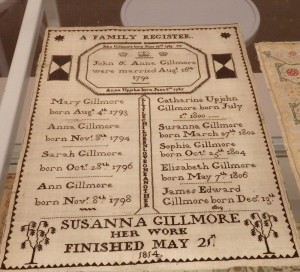 A FAMILY REGISTER.
John Gillmore born
John & Anna Gillmore
were married Augt 16th
1791
Anna Upjohn born
Mary Gillmore
born Augt 4th 1793
Anna Gillmore
born Novr 8th 1794
Sarah Gillmore
born Octr 28th 1796
Ann Gillmore
born Novr 8th 1798
Catharine Upjohn
Gillmore born July
1st 1800
Susanna Gillmore
born March 29th 1802
Sophia Gillmore
born Octr 25th 1804
Elizabeth Gillmore
born May 7th 1806
James Edward
Gillmore born Decr 13th
1809
SUSANNA GILLMORE
HER WORK
FINISHED MAY 21st
1814